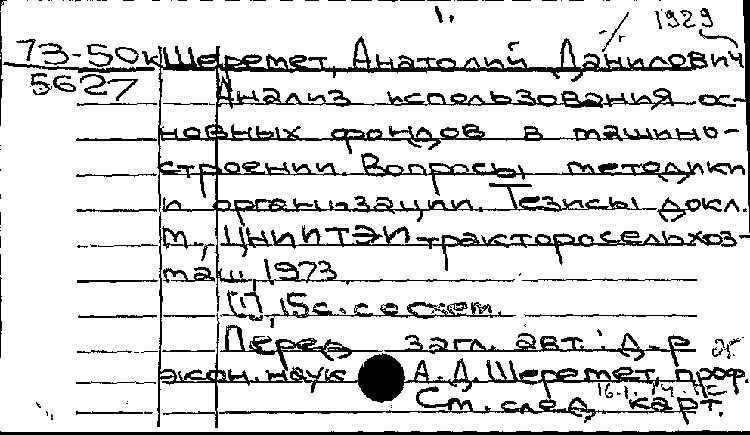 1.
1929
73-50к Шеремет, Анатолий Данилович
5627
Анализ использования ос-
новных фондов в машино-
строении. Вопросы методики
и организации. Тезисы докл.
М., ЦНИИТЭИтракторосельхоз-
маш, 1973.
[1], 15 с. с схем.
Перед загл. авт.: д-р
экон. наук А.Д. Шеремет, проф.
См. след. карт.